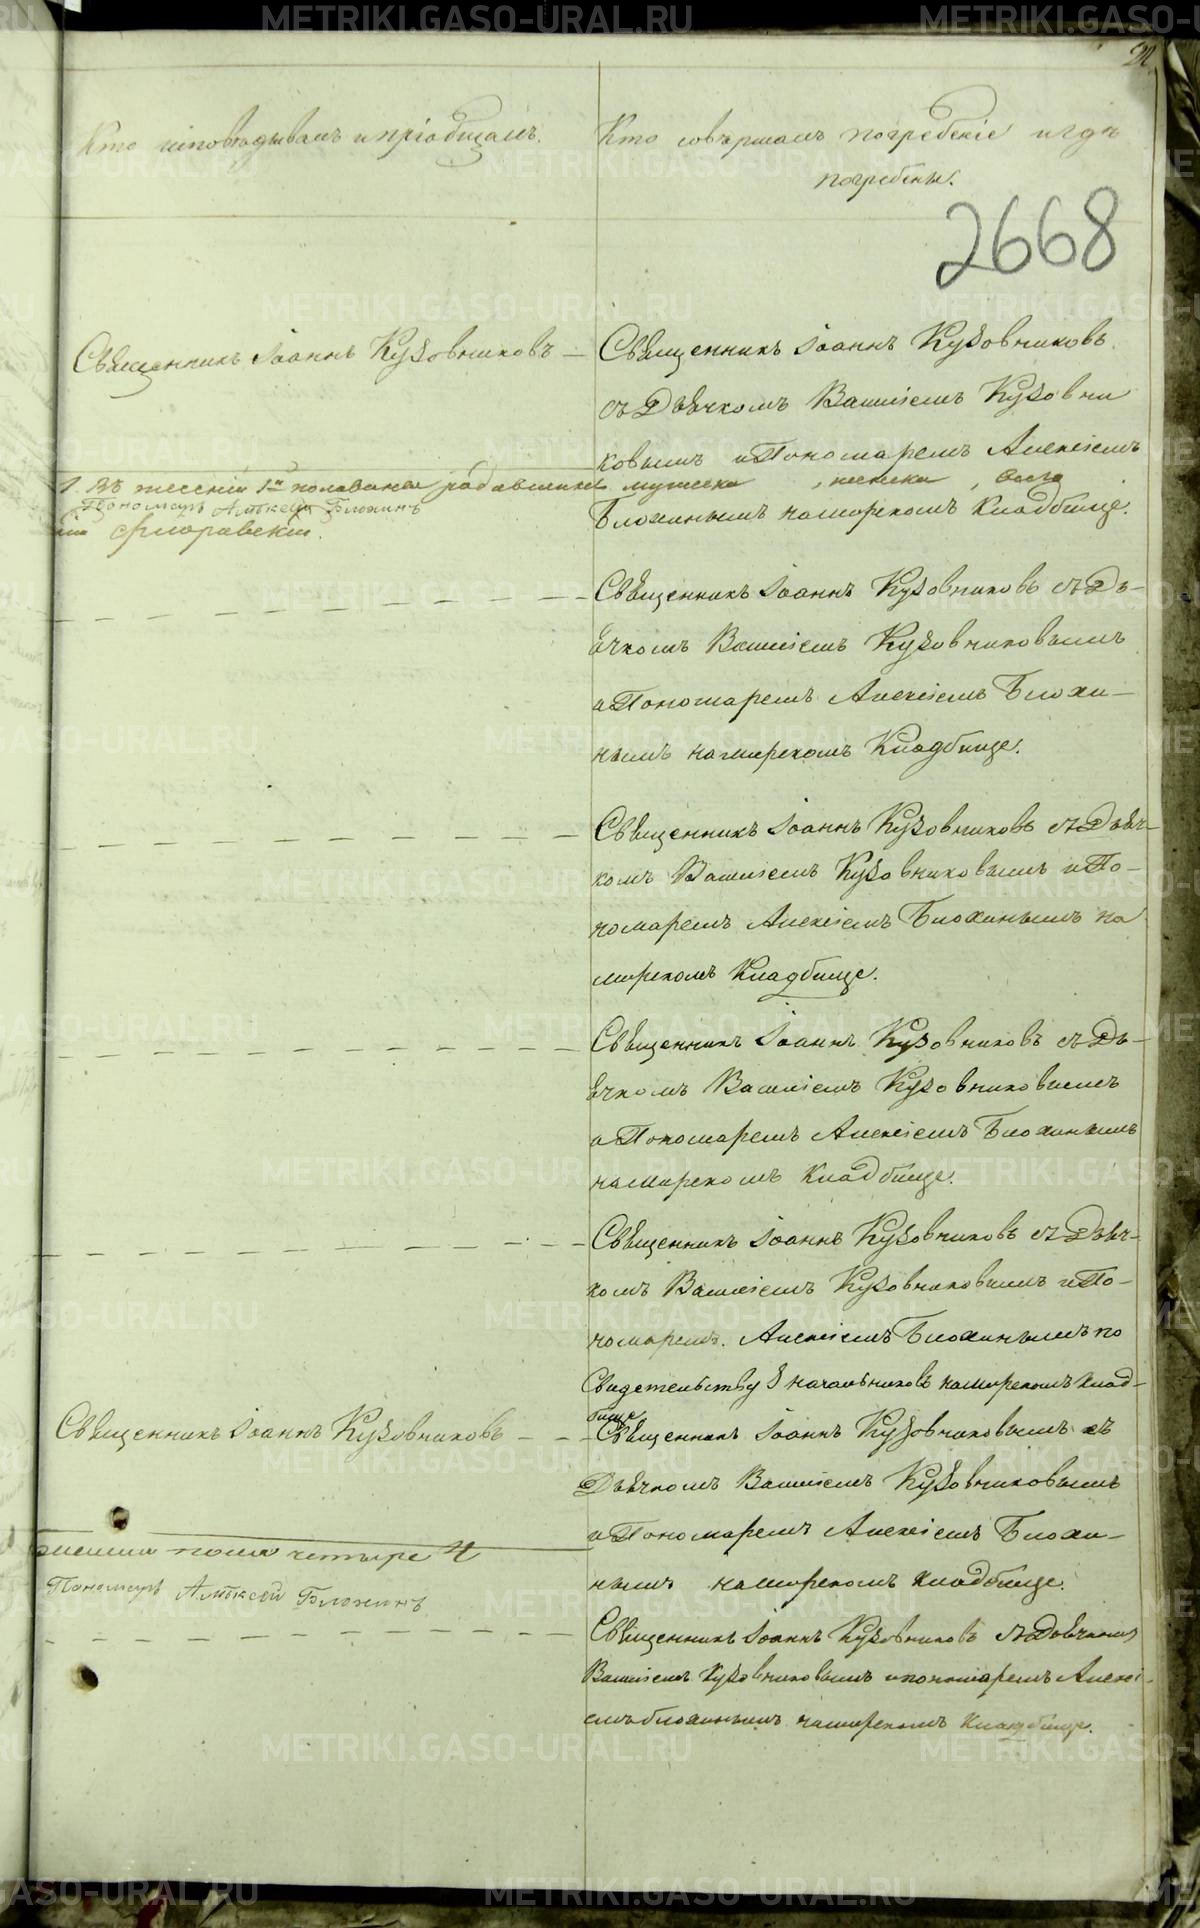 Кто исповѣдывалъ и пріобщалъ.
Кто совершалъ погребеніе и гдѣ
погребены.
2668
Священникъ Іоаннъ Кузовниковъ —
Священникъ Іоаннъ Кузовниковъ
съ Дьячкомъ Василіемъ Кузовни
ковымъ и Пономаремъ Алексіемъ
Блохинымъ на мірскомъ Кладбище.
1. Въ теченіи 1й половины родившихся мужеска , женска , всего
Пономарь Алѣксей Блохинъ
Флоравскій.
Священникъ Іоаннъ Кузовниковъ съ Дь-
ячкомъ Василіемъ Кузовниковымъ
и Пономаремъ Алексіемъ Блохи-
нымъ на мірскомъ Кладбище.
Священникъ Іоаннъ Кузовниковъ съ Дьяч-
комъ Василіемъ Кузовниковымъ и По-
номаремъ Алексіемъ Блохинымъ на
мірскомъ Кладбище.
Священникъ Іоаннъ Кузовниковъ съ Дь-
ячкомъ Василіемъ Кузовниковымъ
и Пономаремъ Алексіемъ Блохинымъ
на мірскомъ Кладбище.
Священникъ Іоаннъ Кузовниковъ съ Дьяч-
комъ Василіемъ Кузовниковымъ и По-
номаремъ. Алексіемъ Блохинымъ по
Свидетельству начальниковъ на мірскомъ клад-
бище
Священникъ Іоаннъ Кузовниковъ
Священникъ Іоаннъ Кузовниковымъ съ
Дьячкомъ Василіемъ Кузовниковымъ
и Пономаремъ Алексіемъ Блохи-
нымъ на мірскомъ кладбище.
женска пола четыре 4
Пономарь Алѣксей Блохинъ
Священникъ Іоаннъ Кузовниковъ съ Дьячкомъ
Василіемъ Кузовниковымъ и пономаремъ Алексі-
емъ блохинымъ на мірскомъ кладбище.
METRIKI.GASO-URAL.RU